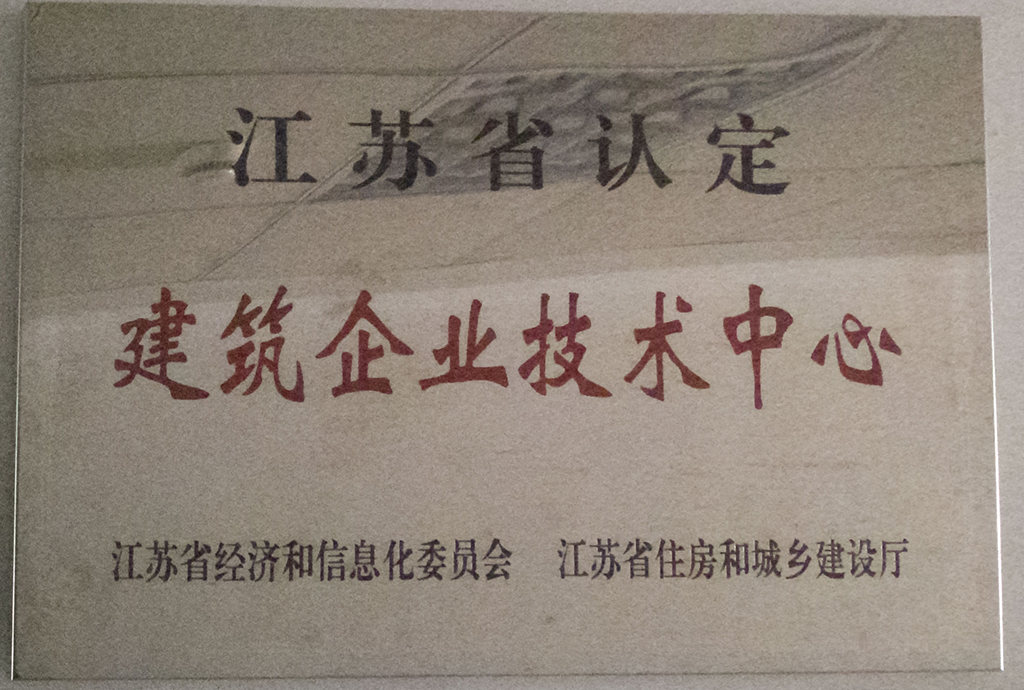 江苏省认定
建筑企业技术中心
江苏省经济和信息化委员会 江苏省住房和城乡建设厅